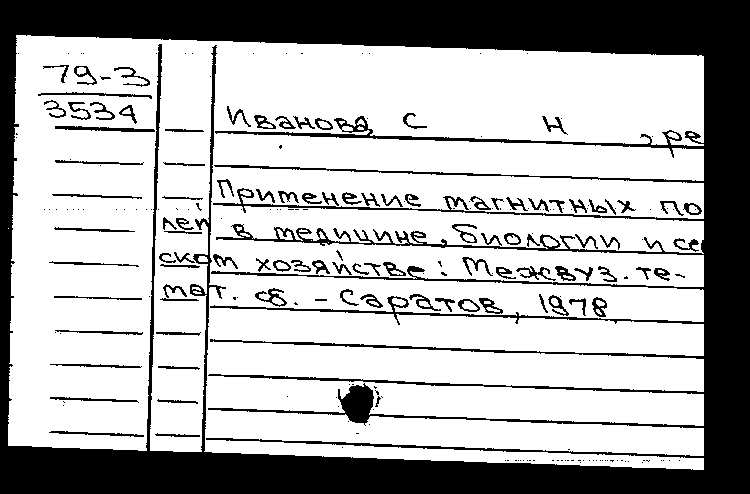 79-3
3534
Иванова, С Н , ре
Применение магнитных по
лей в медицине, биологии и се
ском хозяйстве: Межвуз. те-
мат. сб. - Саратов, 1978.